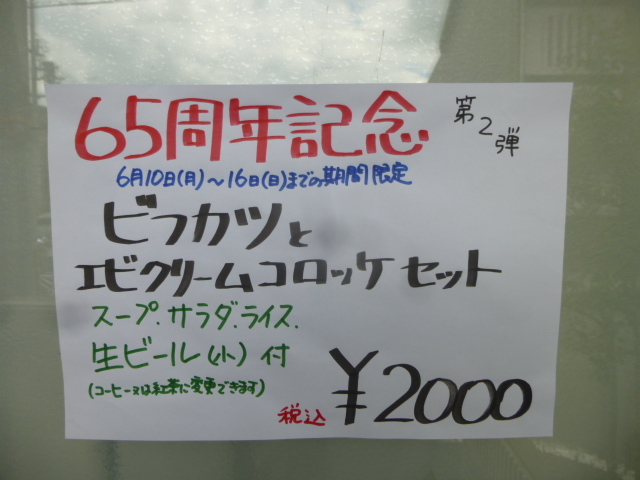 65周年記念
第2弾
6月10日(月)~16日(日)までの期間限定
ビフカツと
エビクリームコロッケセット
スープ.サラダ.ライス.
生ビール(小)付
(コーヒー又は紅茶に変更できます)
税込 ¥2000